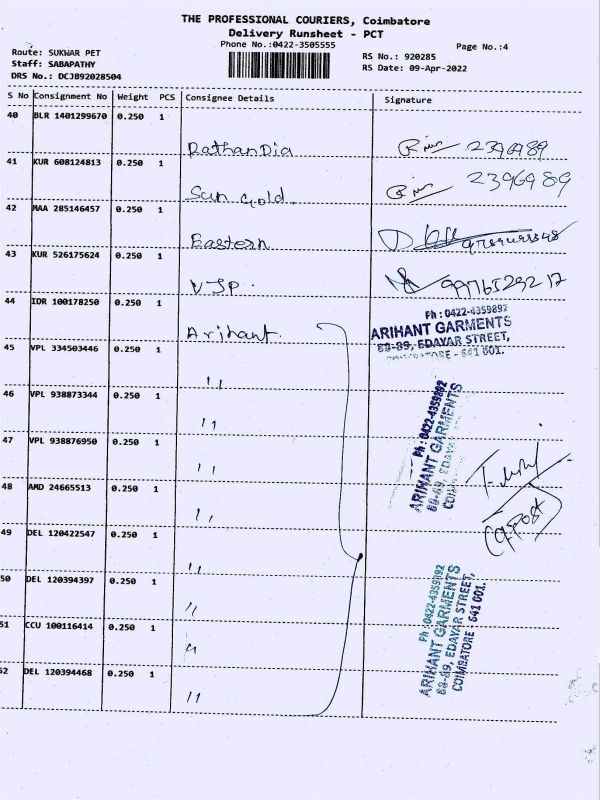 THE PROFESSIONAL COURIERS, Coimbatore
Delivery Runsheet - PCT
Phone No.:0422-3505555
Page No.:4
Route: SUKWAR PET
Staff: SABAPATHY
DRS No.: DCJB92028504
RS No.: 920285
RS Date: 09-Apr-2022
S No Consignment No Weight PCS Consignee Details Signature
40 BLR 1401299670 0.250 1
Rathan Dia 2396989
41 KUR 608124813 0.250 1
Sun Gold. 2396989
42 MAA 285146457 0.250 1
Eastern
43 KUR 526175624 0.250 1
VJP.
44 IDR 100178250 0.250 1
Arihant
Ph : 0422-4359892
ARIHANT GARMENTS
88-89, EDAYAR STREET,
COIMBATORE - 641 001.
45 VPL 334503446 0.250 1
11
46 VPL 938873344 0.250 1
11
47 VPL 938876950 0.250 1
11
Ph : 0422-4359892
ARIHANT GARMENTS
88-89, EDAYA
COIM
48 AMD 24665513 0.250 1
11
49 DEL 120422547 0.250 1
11
50 DEL 120394397 0.250 1
11
51 CCU 100116414 0.250 1
11
52 DEL 120394468 0.250 1
11
Ph : 0422-4359892
ARIHANT GARMENTS
88-89, EDAYAR STREET,
COIMBATORE - 641 001.